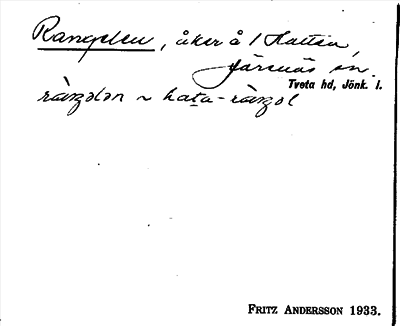 Rangeln, åker å 1 Hatten,
Järsnäs sn.
Tveta hd, Jönk. l.
ràŋələn ~ hata-ràŋəl
FRITZ ANDERSSON 1933.